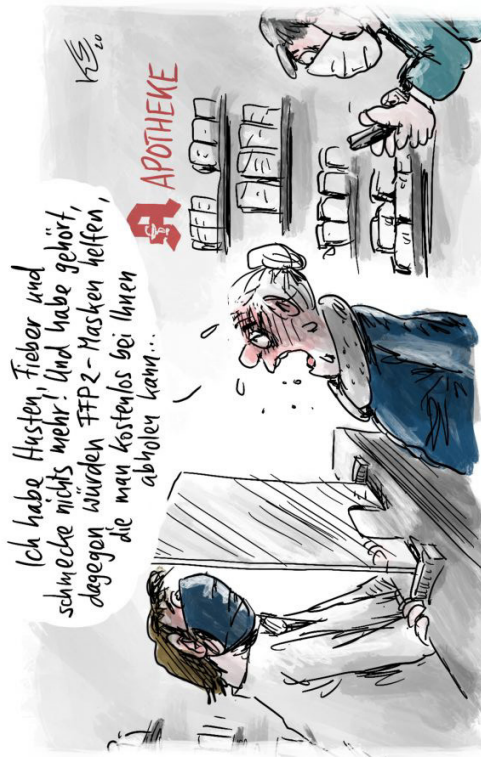 Ich habe Husten, Fieber und
schmecke nichts mehr! Und habe gehört,
dagegen würden FFP2-Masken helfen,
die man kostenlos bei Ihnen
abholen kann...
APOTHEKE